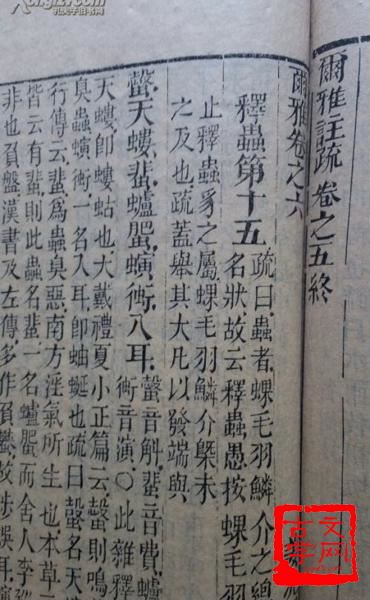 爾雅註疏卷之五終
爾雅卷之六
釋蟲第十五
疏曰蟲者蜾毛羽鱗介之總
名狀故云釋蟲愚按蜾毛羽
止釋蟲豸之屬蜾毛羽鱗介槩未
之及也疏蓋舉其大凡以發端與
螜天螻蜚蠦蜰螾衎入耳
螜音斛蜚音費蠦
衎音演○此雜釋
天螻卽螻蛄也大戴禮夏小正篇云螜則鳴
臭蟲螾衎一名入耳卽蚰蜒也疏曰螜名天
行傳云蜚爲蟲臭惡南方淫氣所生也本草
皆云有蜚則此蟲名蜚一名蠦蜰而舍人李
非也負盤漢書及左傳多作負蠜故涉誤耳
古文字网